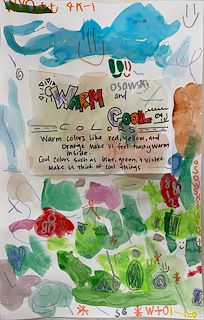 4K-1
OSOWSKI
WARM and
COOL
COLORS
Warm colors like red, yellow, and
orange make us feel toasty warm
inside.
Cool colors such as blue, green & violet
make us think of cool things.